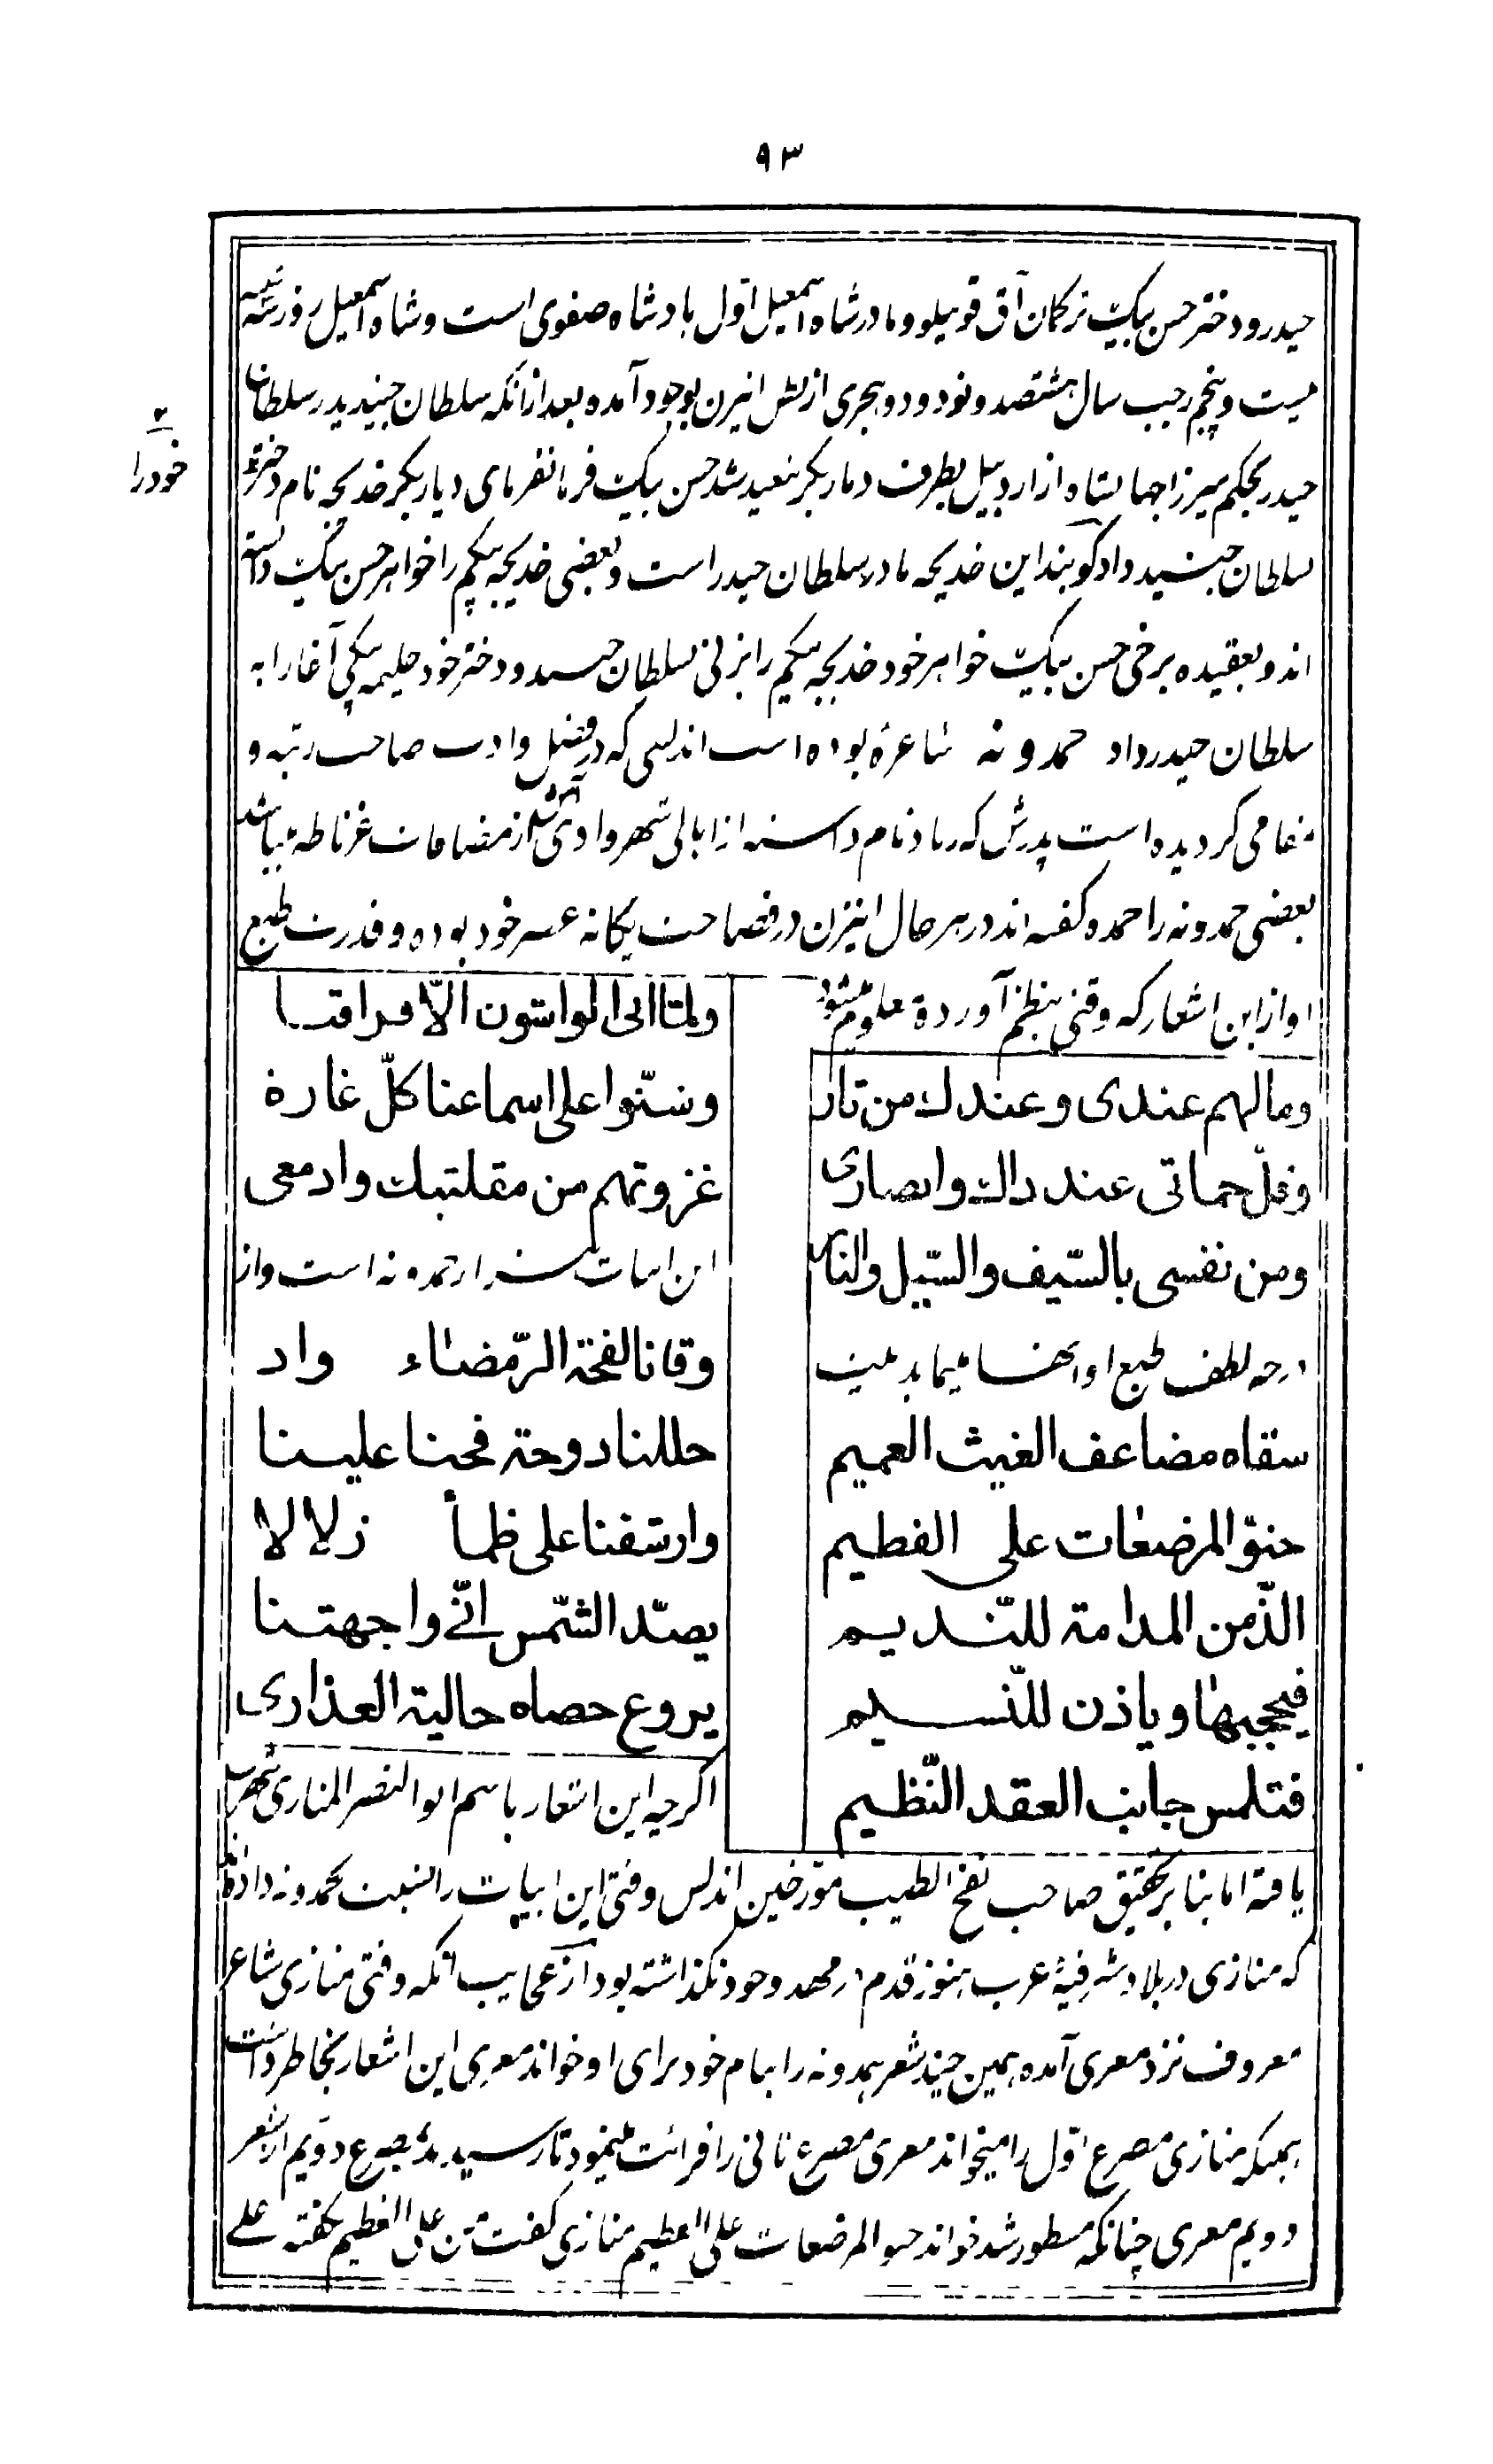 ٩٣
حیدر و دختر حسن بیک ترکمان آق قویيلو و مادر شاه اسمعیل اوّل پادشاه صفوی است و شاه اسمعیل روز سه شنبه
بیست و پنجم رجب سال هشتصد و نود و دو هجری از بطن اینزن بوجود آمده بعد از آنکه سلطان جنید پدر سلطان
حیدر بحکم میرزا جهانشاه از اردبیل بطرف دیاربکر تبعید شد حسن بیک فرمانفرمای دیاربکر خدیجه نام دختر
خود را
سلطان جنید داد گویند این خدیجه مادر سلطان حیدر است و بعضی خدیجه بیکم را خواهر حسن بیک دانسته
اند و بعقیده برخی حسن بیک خواهر خود خدیجه بیکم را بزنی بسلطان جنید و دختر خود حلیمه بیکی آغا را به
سلطان حیدر داد حمدونه شاعرهٔ بوده است اندلسی که در فضل و ادب صاحب رتبه و
مقامی کردیده است پدرش که زیاد نام داشته از اهالی شهر وادی آش از مضافات غرناطه میباشد
بعضی حمدونه را حمده کفته اند در هر حال اینزن در فصاحت یکانه عصر خود بوده و قدرت طبع
او از این اشعار که وقتی بنظم آورده معلوم میشود
ولمّا ابی الواشون الاّ فراقنا
وما لهم عندی و عندك من ثار
وشنّوا علی اسماعنا کلّ غارة
وقلّ حماتی عند ذاك وانصاری
غزوتهم من مقلتیك وادمعی
ومن نفسی بالسّیف والسّیل والنار
این ابیات نیز از حمدونه است و از
درجه لطف طبع او انها مینماید بیت
وقانا لفحة الرّمضاء واد
سقاه مضاعف الغیث العمیم
حللنا دوحته فحنا علینا
حنوّ المرضعات علی الفطیم
وارشفنا علی ظمأ زلالا
الذّ من المدامة للنّدیم
یصدّ الشّمس انّی واجهتنا
فیحجبها و یاذن للنّسیم
یروع حصاه حالیة العذاری
فتلمس جانب العقد النّظیم
اکرچه این اشعار باسم ابو النصر المنازی شهرت
یافته اما بنابر تحقیق صاحب نفح الطیب مورّخین اندلس وقتی این ابیات را نسبت بحمدونه داده اند
که منازی در بلاد شرقیهٔ عرب هنوز قدم در مهد وجود نکذاشته بود از عجایب آنکه وقتی منازی شاعر
معروف نزد معری آمده همین چند شعر حمدونه را بنام خود برای او خواند معری این اشعار بخاطر داشت
همینکه منازی مصرع اوّل را میخواند معری مصرع ثانی را قرائت مینمود تا رسیدند بمصرع دویم از شعر
دویم معری چنانکه مسطور شد خواند حنو المرضعات علی الفطیم منازی کفت من علی الفطیم کفته علی